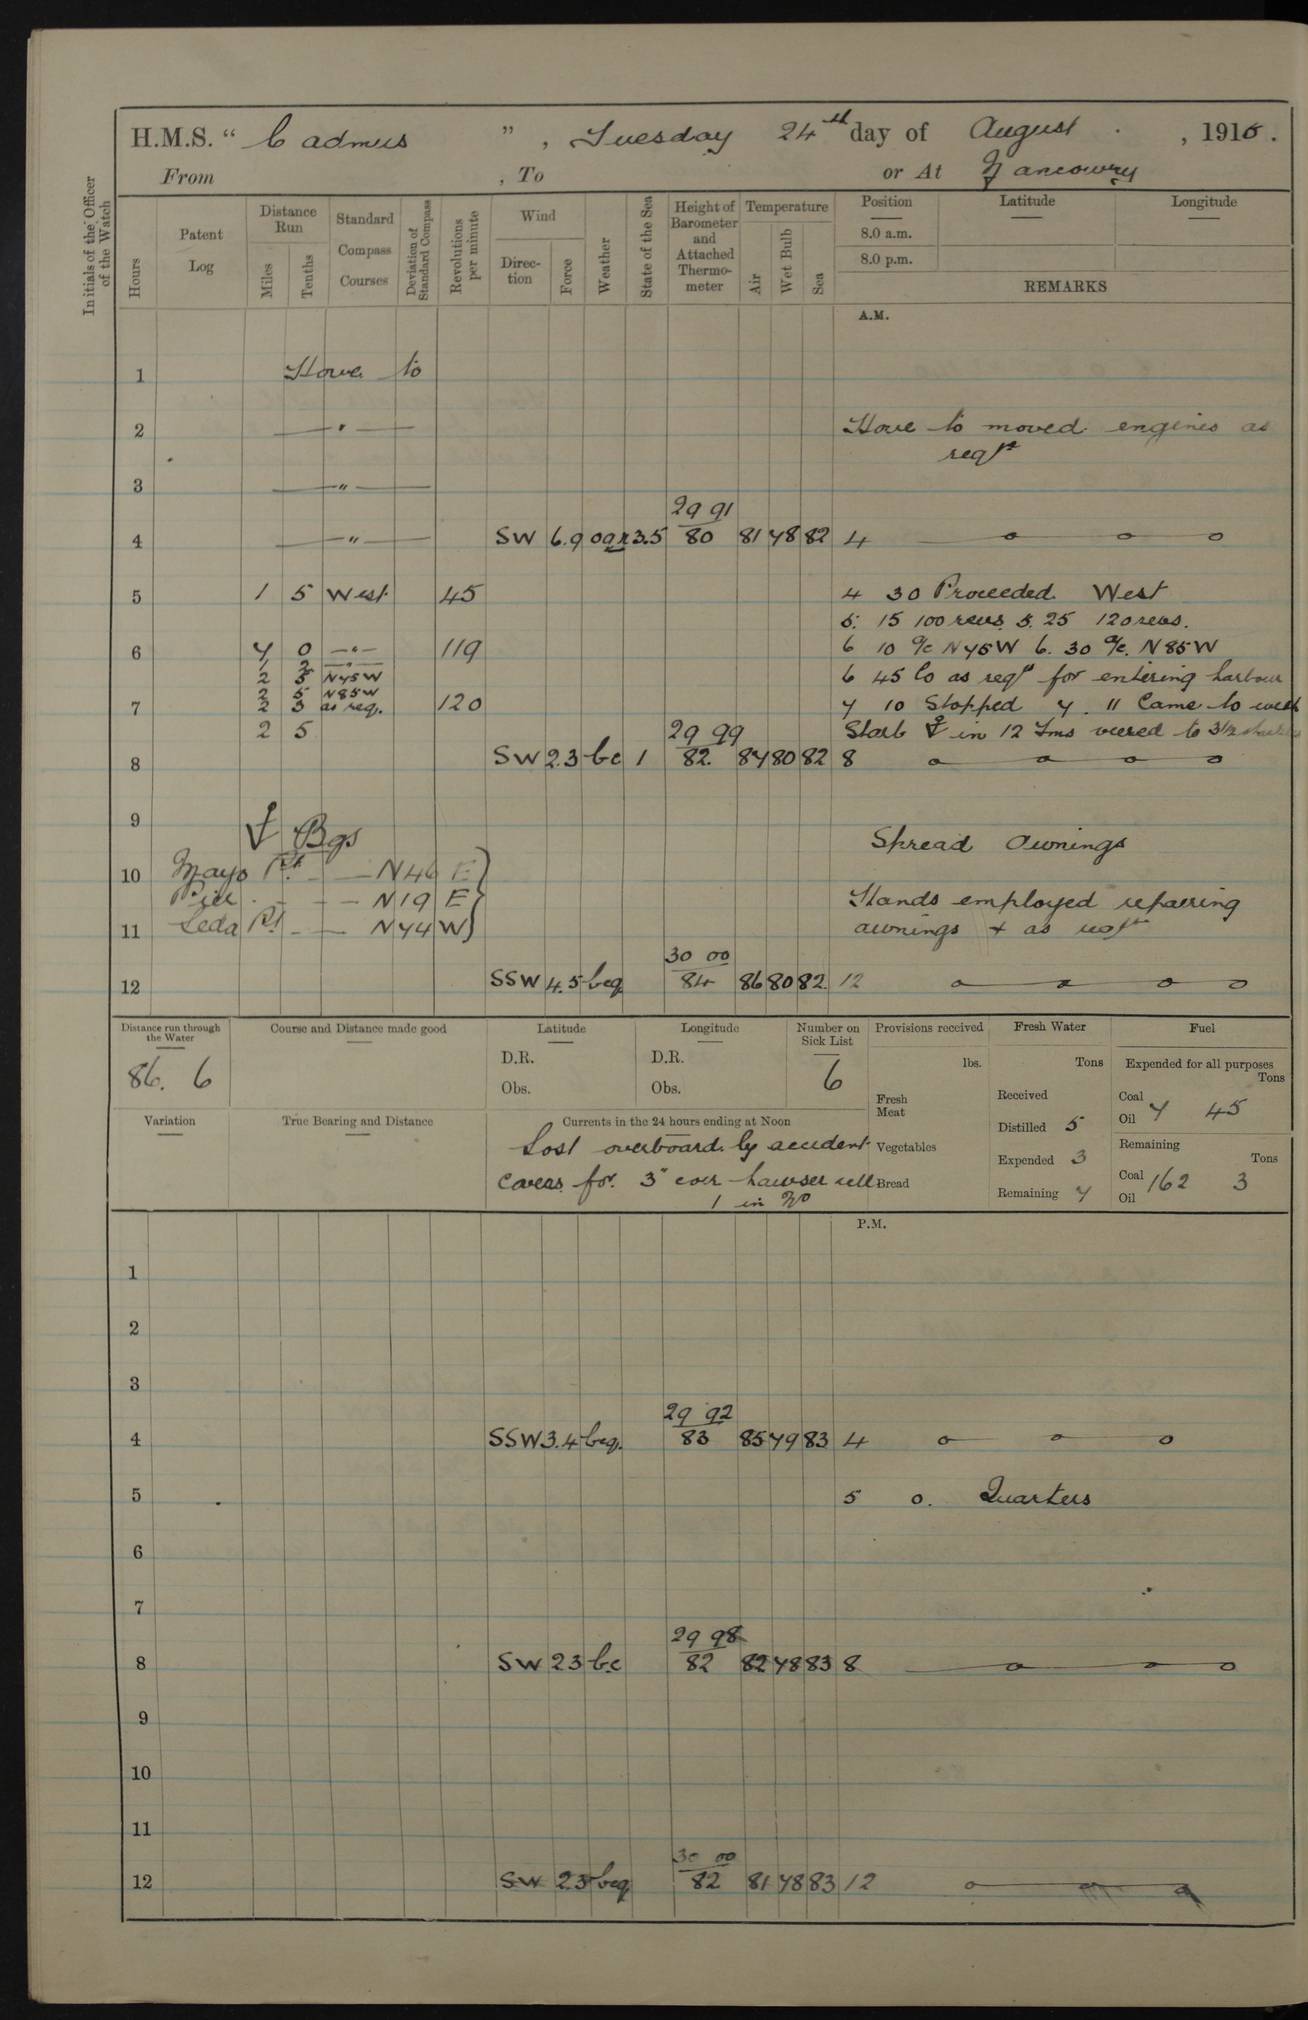 H.M.S. "Cadmus", Tuesday 24th day of August, 1915.
From , To or At Nancowry
Initials of the Officer of the Watch
Hours
Patent Log
Distance Run
Miles
Tenths
Standard Compass Courses
Deviation of Standard Compass
Revolutions per minute
Wind
Direction
Force
Weather
State of the Sea
Height of Barometer and Attached Thermometer
Temperature
Air
Wet Bulb
Sea
Position
8.0 a.m.
8.0 p.m.
Latitude
Longitude
REMARKS
A.M.
1 Hove to
2 — " — Hove to moved engines as
reqd
3 — " —
29 91
4 — " — SW 6.9 oqr 3.5 80 81 78 82 4
5 1 5 West 45 4 30 Proceeded West
5. 15 100 revs. 5. 25 120 revs.
6 7 0 — " — 119 6 10 a/c N75W 6. 30 a/c. N85W
1 2 — " —
2 5 N75W 6 45 Co as reqd for entering harbour
2 5 N85W
7 2 3 as req. 120 7 10 Stopped 7. 11 Came to with
2 5 29 99 Starb ⚓ in 12 fms veered to 3½ shackles
8 SW 2.3 bc 1 82. 84 80 82 8
9
⚓ Bgs Spread Awnings
10 Mayo Pt. — — N46 E
Pier — — N19 E Hands employed repairing
11 Leda Pt — — N74W awnings + as reqd
30 00
12 SSW 4.5 bcq 84 86 80 82 12
Distance run through the Water
86. 6
Course and Distance made good
Latitude
D.R.
Obs.
Longitude
D.R.
Obs.
Number on Sick List
6
Provisions received
lbs.
Fresh Meat
Vegetables
Bread
Fresh Water
Tons
Received
Distilled 5
Expended 3
Remaining 7
Fuel
Expended for all purposes
Tons
Coal
Oil 7 45
Remaining
Tons
Coal 162 3
Oil
Variation
True Bearing and Distance
Currents in the 24 hours ending at Noon
Lost overboard by accident
Covers for 3" hawser reel
1 in No
P.M.
1
2
3
29 92
4 SSW 3.4 bcq. 83 85 79 83 4
5 5 0. Quarters
6
7
29 98
8 SW 2 3 bc 82 82 78 83 8
9
10
11
30 00
12 SW 2.3 bcq 82 81 78 83 12